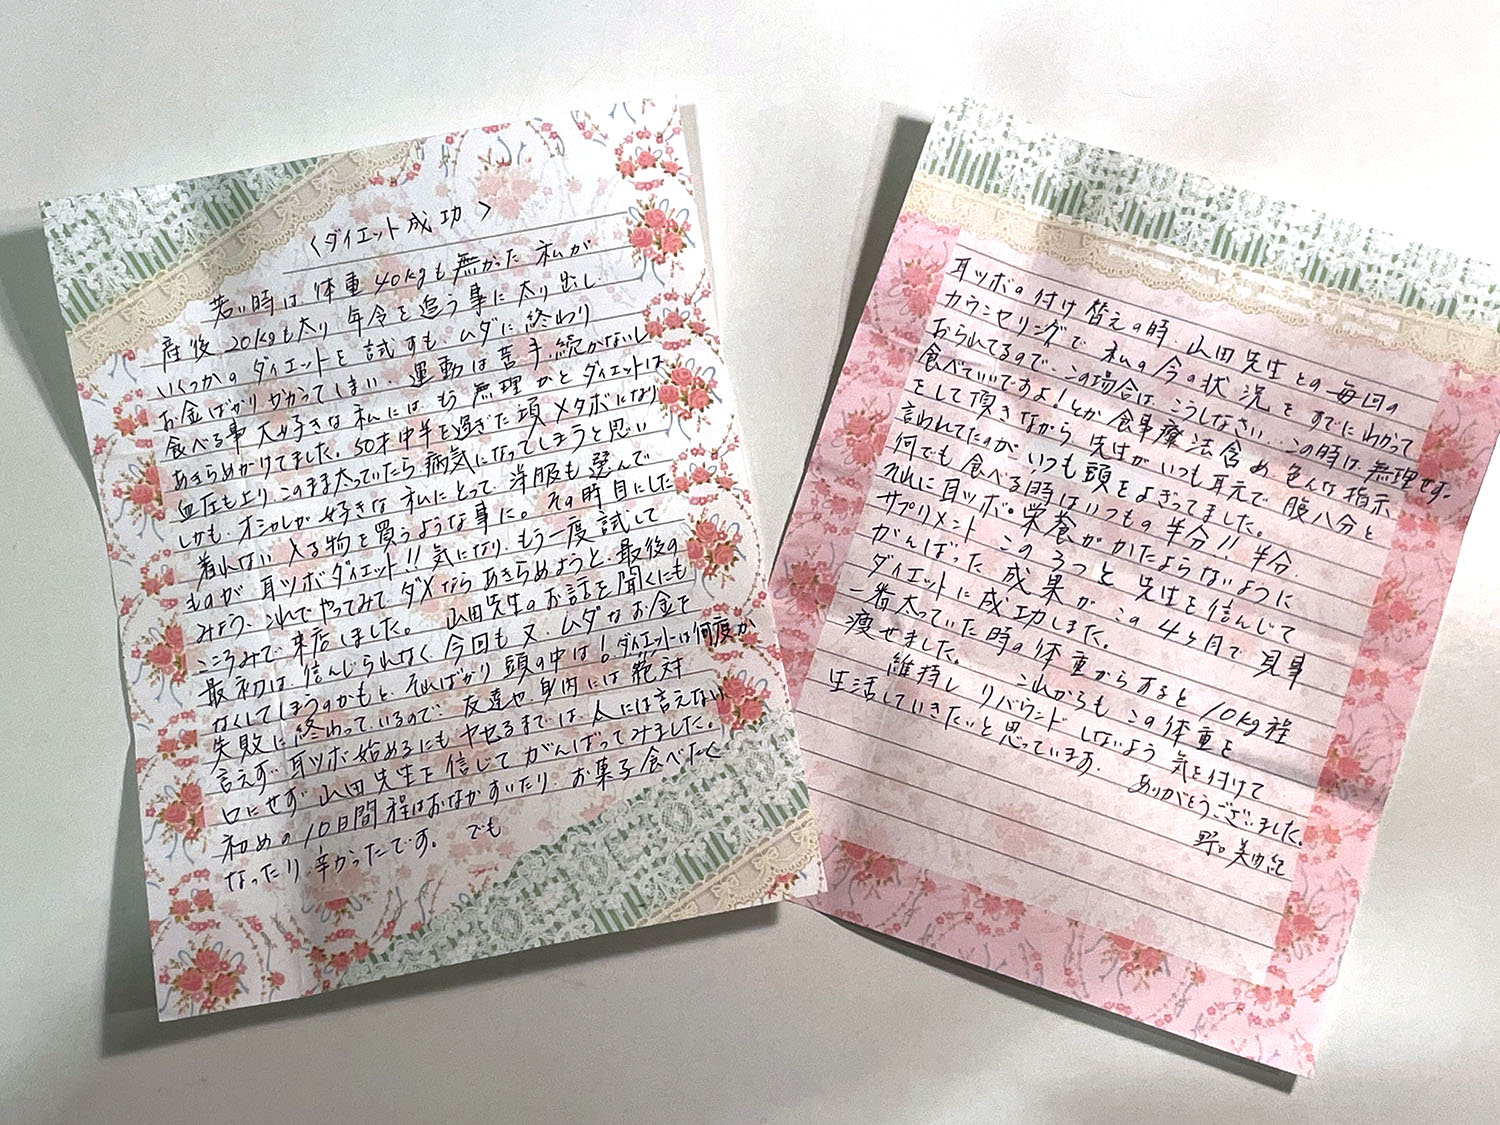 〈ダイエット成功〉
若い時は体重40kgも無かった私が
産後20kgも太り年令を追う事に太り出し、
いくつかのダイエットを試すも、ムダに終わり
お金ばかりかかってしまい、運動は苦手、続かないし
食べる事大好きな私には、もう無理かとダイエットは
あきらめかけてました。50才中半を過ぎた頃メタボになり
血圧も上り、このまま太っていたら病気になってしまうと思い
しかも、オシャレが好きな私にとって、洋服も選んで
着れない入る物を買うような事に。その時目にした
ものが耳ツボダイエット!!気になり、もう一度試して
みよう、これでやってみてダメならあきらめようと、最後の
こころみで来店しました。山田先生のお話を聞くにも
最初は、信んじられなく今回も又、ムダなお金を
なくしてしまうのかもと、そればかり頭の中は!ダイエットは何度か
失敗に終わっているので、友達や身内には絶対
言えず耳ツボ始めるにもヤセるまでは、人には言えない
口にせず山田先生を信じてがんばってみました。
初めの10日間程はおなかすいたり、お菓子食べたく
なったり、辛かったです。でも
耳ツボの付け替えの時、山田先生との毎回の
カウンセリングで私の今の状況をすでにわかって
おられてるので、この場合は、こうしなさい、この時は無理せず、
食べていいですよ!とか食事療法含め色んな指示
をして頂きながら先生がいつも耳元で腹八分と
言われてたのがいつも頭をよぎってました。
何でも食べる時はいつもの半分!!半分、
それに耳ツボ。栄養がかたよらないように
サプリメントこの3つと先生を信んじて
がんばった成果がこの4ヶ月で見事
ダイエットに成功しました。
一番太っていた時の体重からすると10kg程
痩せました。これからもこの体重を
維持しリバウンドしないよう気を付けて
生活していきたいと思っています。
ありがとうございました。
野口美由紀